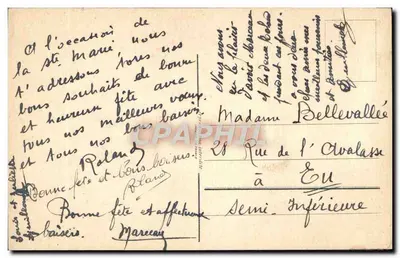 A l'occasion de
la Ste Marie nous
t'adressons tous nos
bons souhaits de bonne
et heureuse fête avec
tous nos meilleurs vœux
et tous nos bons baisers.
Roland
Bonne fête et bons baisers.
Roland
Bonne fête et affectueux
baisers
Marceau
Nous avons
eu le plaisir
d'avoir Marceau
et les deux Roland
pendant
à vous deux
meilleurs souvenirs
et amitiés
Madame Bellevallée
21 Rue de l'Avalasse
à Eu
Seine-Inférieure
CPAPHIL